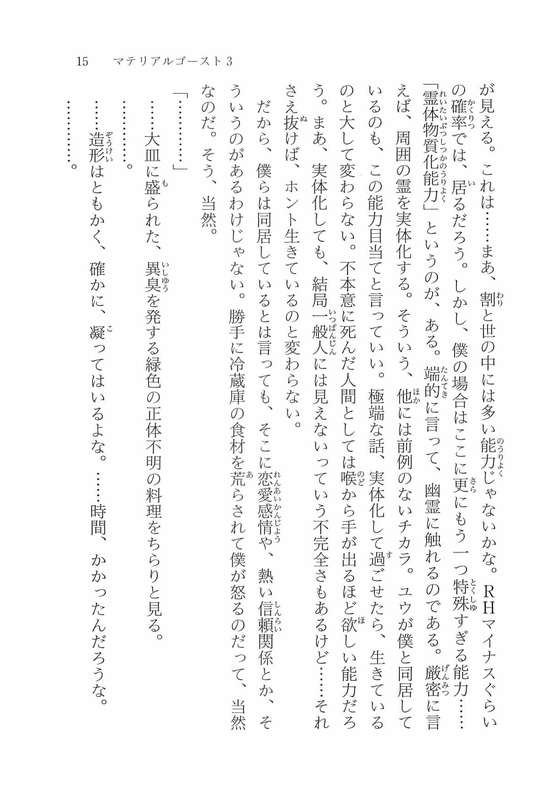 15　マテリアルゴースト3
が見える。これは……まあ、割と世の中には多い能力じゃないかな。RHマイナスぐらい
の確率では、居るだろう。しかし、僕の場合はここに更にもう一つ特殊すぎる能力……
「霊体物質化能力」というのが、ある。端的に言って、幽霊に触れるのである。厳密に言
えば、周囲の霊を実体化する。そういう、他には前例のないチカラ。ユウが僕と同居して
いるのも、この能力目当てと言っていい。極端な話、実体化して過ごせたら、生きている
のと大して変わらない。不本意に死んだ人間としては喉から手が出るほど欲しい能力だろ
う。まあ、実体化しても、結局一般人には見えないっていう不完全さもあるけど……それ
さえ抜けば、ホント生きているのと変わらない。
だから、僕らは同居しているとは言っても、そこに恋愛感情や、熱い信頼関係とか、そ
ういうのがあるわけじゃない。勝手に冷蔵庫の食材を荒らされて僕が怒るのだって、当然
なのだ。そう、当然。
「…………」
……大皿に盛られた、異臭を発する緑色の正体不明の料理をちらりと見る。
…………。
……造形はともかく、確かに、凝ってはいるよな。……時間、かかったんだろうな。
…………。